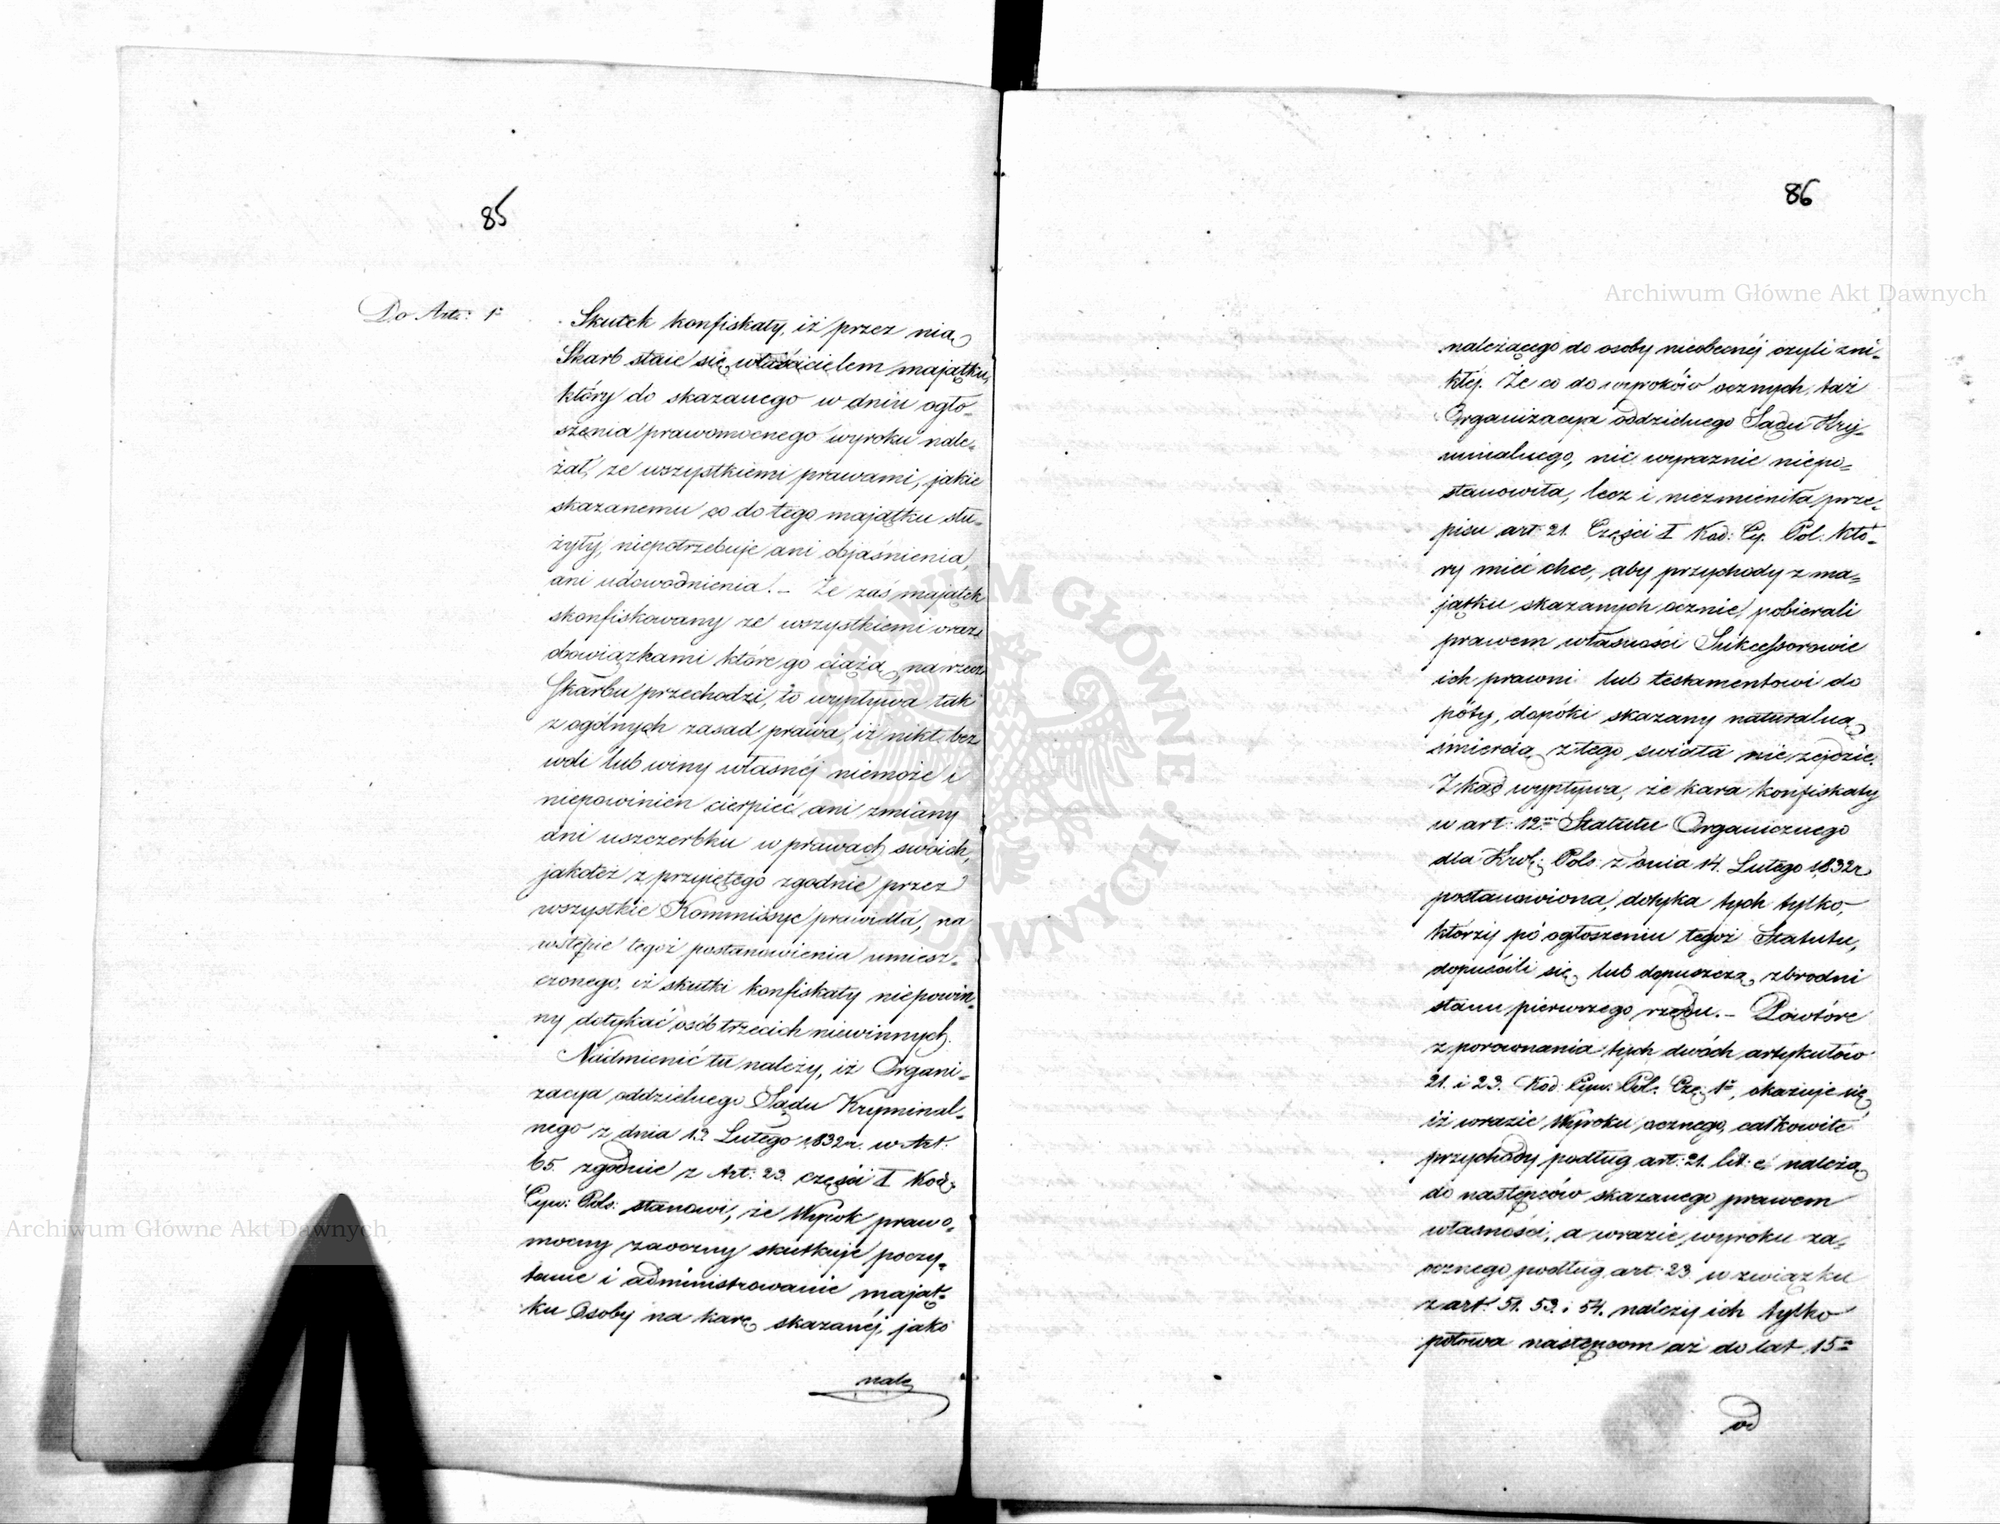 85
Do Art: 1º
Skutek konfiskaty, iż przez nią
Skarb staie się właścicielem majątku,
który do skazanego w dniu ogło-
szenia prawomocnego wyroku nale-
żał, ze wszystkiemi prawami, jakie
skazanemu co do tego majątku słu-
żyły, niepotrzebuje ani objaśnienia,
ani udowodnienia. – Że zaś majątek
skonfiskowany ze wszystkiemi oraz
obowiązkami które go ciążą, na rzecz
Skarbu przechodzi, to wypływa tak
z ogólnych zasad prawa, iż nikt bez
woli lub winy własnéj niemoże i
niepowinien cierpieć ani zmiany
ani uszczerbku w prawach swoich,
jakoteż z przyiętego zgodnie przez
wszystkie Kommissye prawidła, na
wstępie tegoż postanowienia umiesz-
czonego, iż skutki konfiskaty niepowin-
ny dotykać osób trzecich niewinnych.
Nadmienić tu należy, iż Organi-
zacya oddzielnego Sądu Kryminal-
nego z dnia 13 Lutego 1832 r. w Art.
65. zgodnie z Art: 23. części I Kod:
Cyw: Pols: stanowi, że Wyrok prawo-
mocny zaoczny skutkuje poczy-
tanie i administrowanie mająt-
ku Osoby na karę skazanéj, jako
nale
86
należącego do osoby nieobecnéj czyli zni-
kłéj. Że co do wyroków ocznych, taż
Organizacya oddzielnego Sądu Kry-
minalnego, nic wyraznie niepo-
stanowiła, lecz i niezmieniła prze-
pisu art: 21. Części I Kod: Cy. Pol: któ-
ry mieć chce, aby przychody z ma-
jątku skazanych ocznie, pobierali
prawem własności Sukcessorowie
ich prawni lub testamentowi do
póty, dopóki skazany naturalną
śmiercią z tego swiata nie zejdzie.
Z kąd wypływa, że kara konfiskaty
w art: 12ᵐ Statutu Organicznego
dla Krol: Pols: z dnia 14. Lutego 1832 r
postanowiona, dotyka tych tylko,
którzy po ogłoszeniu tegoż Statutu,
dopuścili się lub dopuszczą zbrodni
stanu pierwszego rzędu. – Powtóre
z porownania tych dwóch artykułów
21. i 23. Kod: Cyw: Pol: Czę: 1ª, okazuje się
iż w razie Wyroku ocznego, całkowite
przychody podług art: 21. lit: c. należą
do następców skazanego prawem
własności, a w razie wyroku za-
ocznego podług art: 23. w związku
z art: 51. 53. i 54. należy ich tylko
połowa następcom aż do lat 15ᵘ
od
Archiwum Główne Akt Dawnych
Archiwum Główne Akt Dawnych
ARCHIWUM GŁÓWNE AKT DAWNYCH